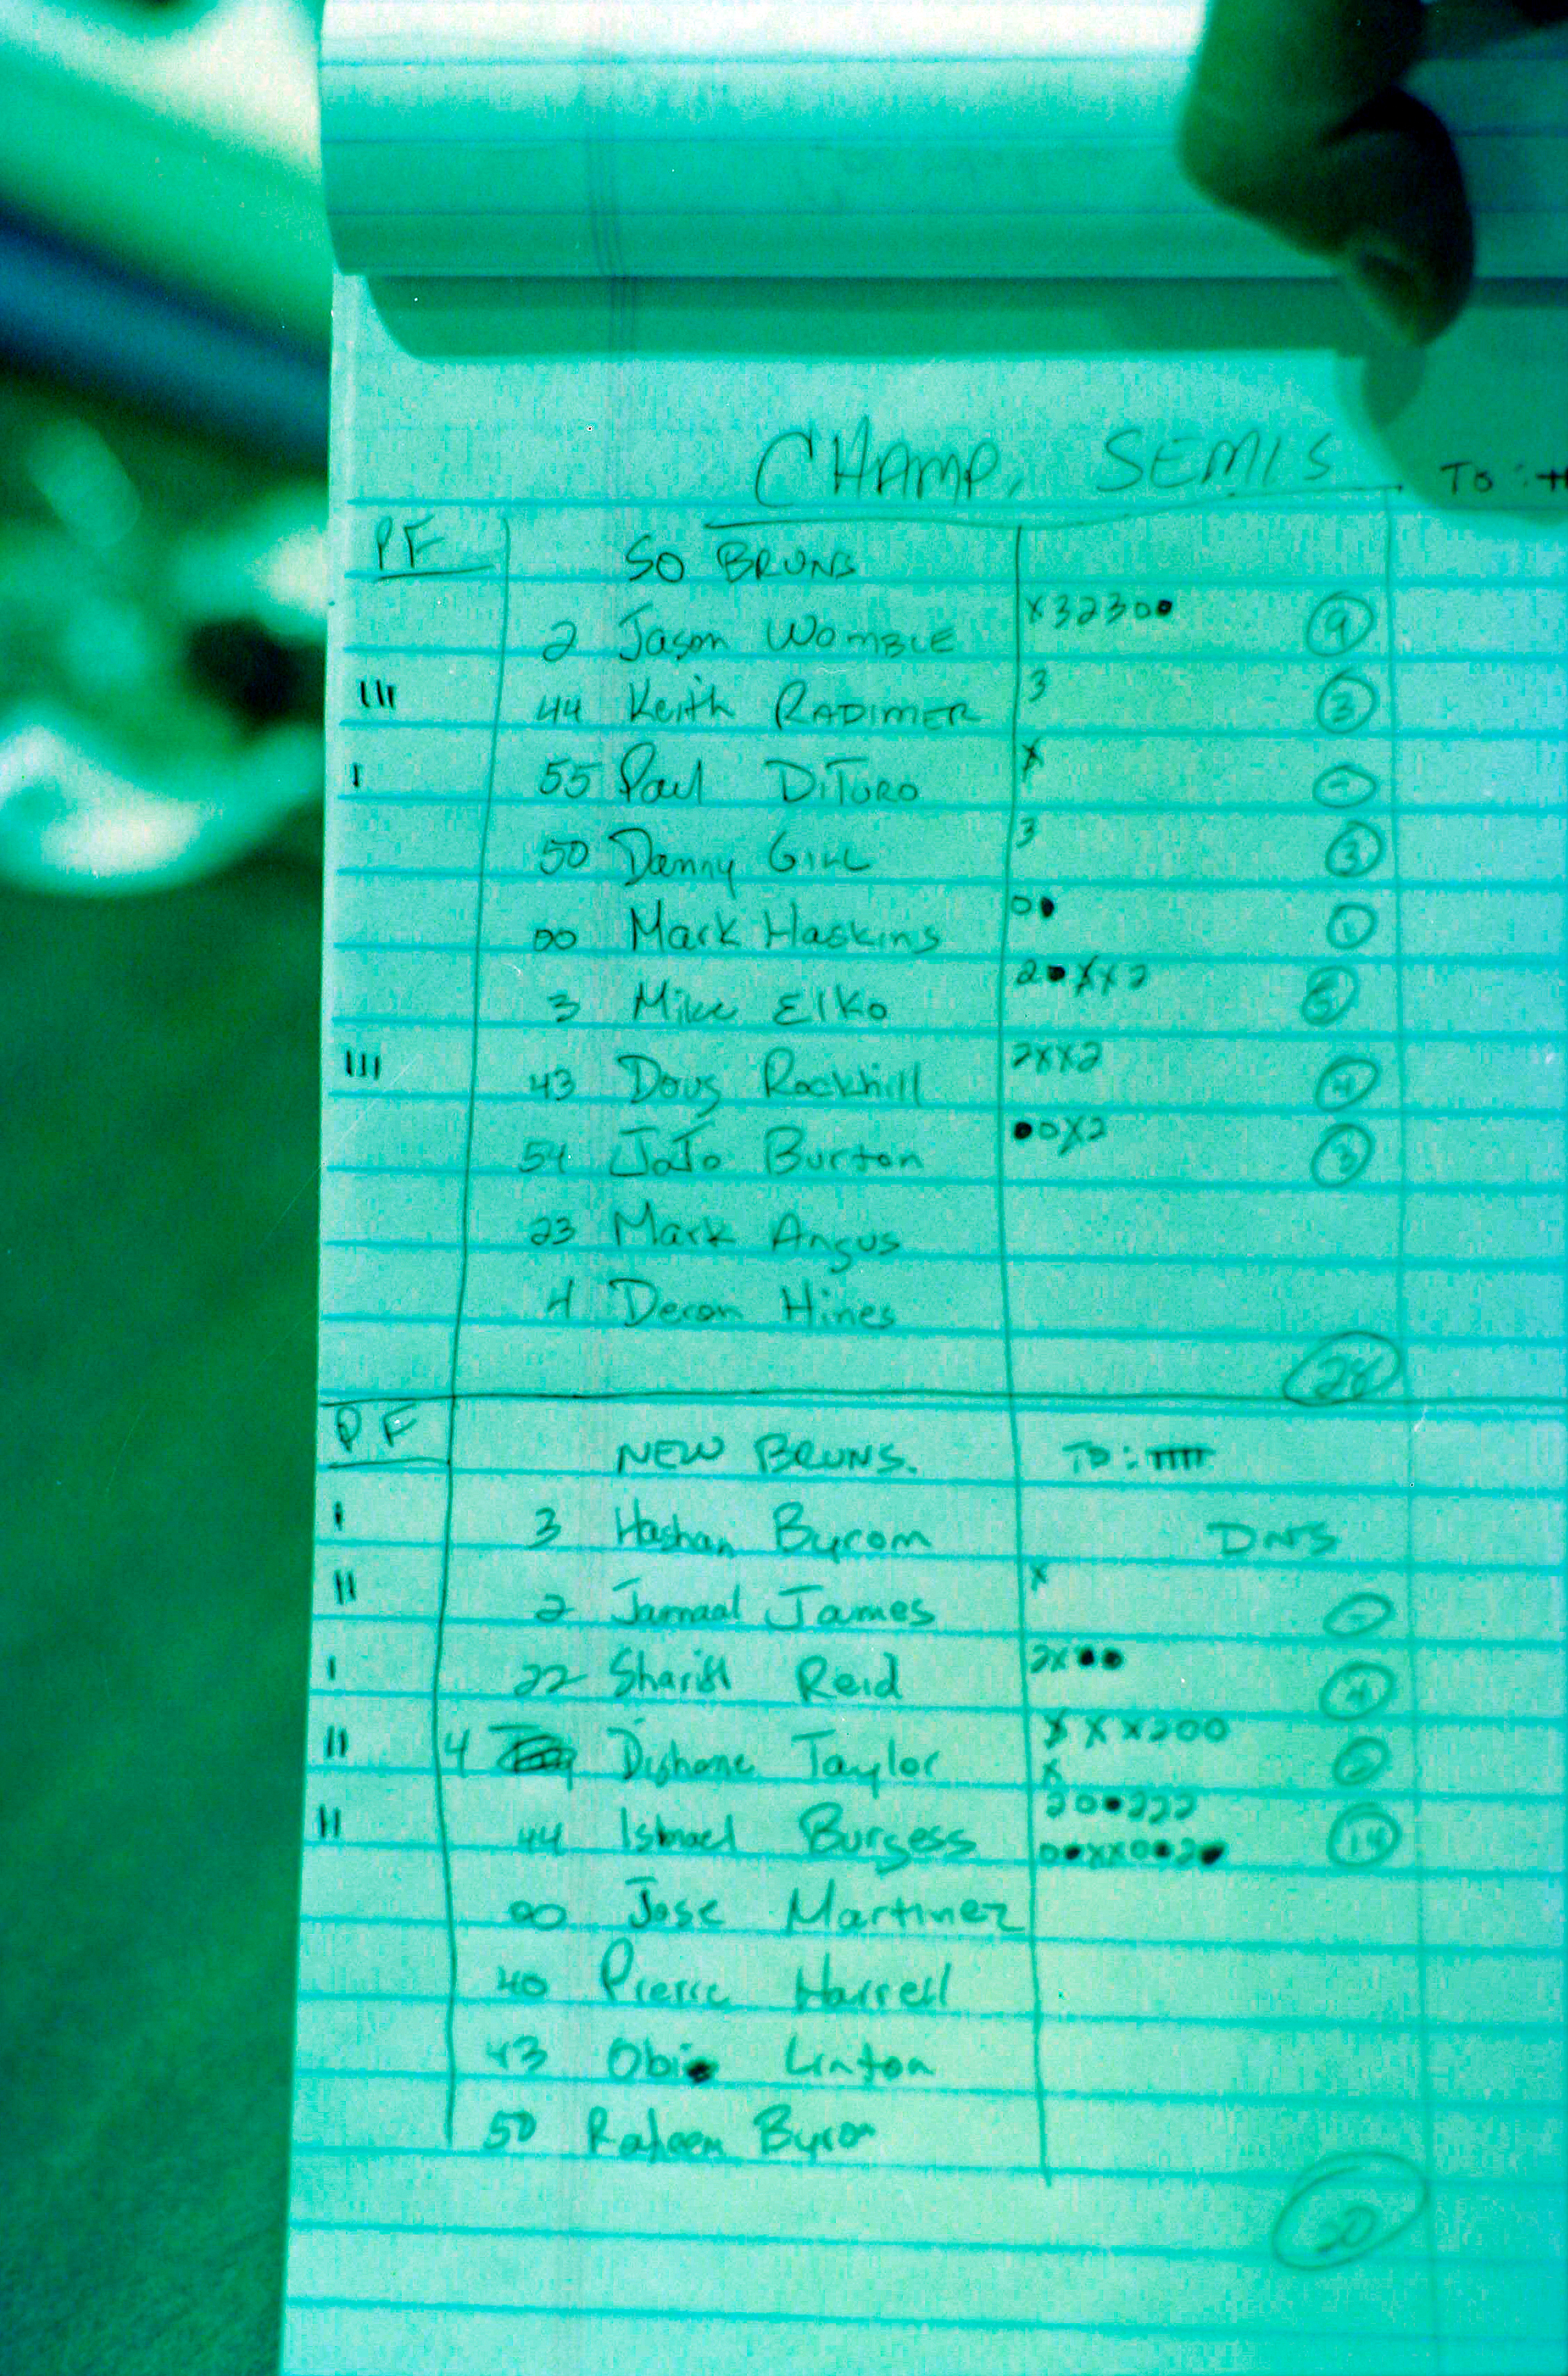 CHAMP. SEMIS
TO:
PF SO BRUNS
2 Jason WOMBLE X3230● 9
III 44 Keith RADIMER 3 3
I 55 Paul DiTURO X -
50 Danny GILL 3 3
00 Mark Haskins 0● 1
3 Mike Elko 2●XX2 5
III 43 Doug Rockhill 2XX2 4
54 JoJo Burton ●0X2 3
23 Mark Angus
4 Deron Hines
28
PF NEW BRUNS. TO: IIIII
I 3 Hashan Byrom DNS
II 2 Jamaal James X -
I 22 Shariff Reid 2X●● 4
II 4 Dishone Taylor XXX200 2
X
20●222
II 44 Ismael Burgess 0●XX0●2● 14
00 Jose Martinez
40 Pierre Harrell
43 Obi Linton
50 Raheem Byrom
20